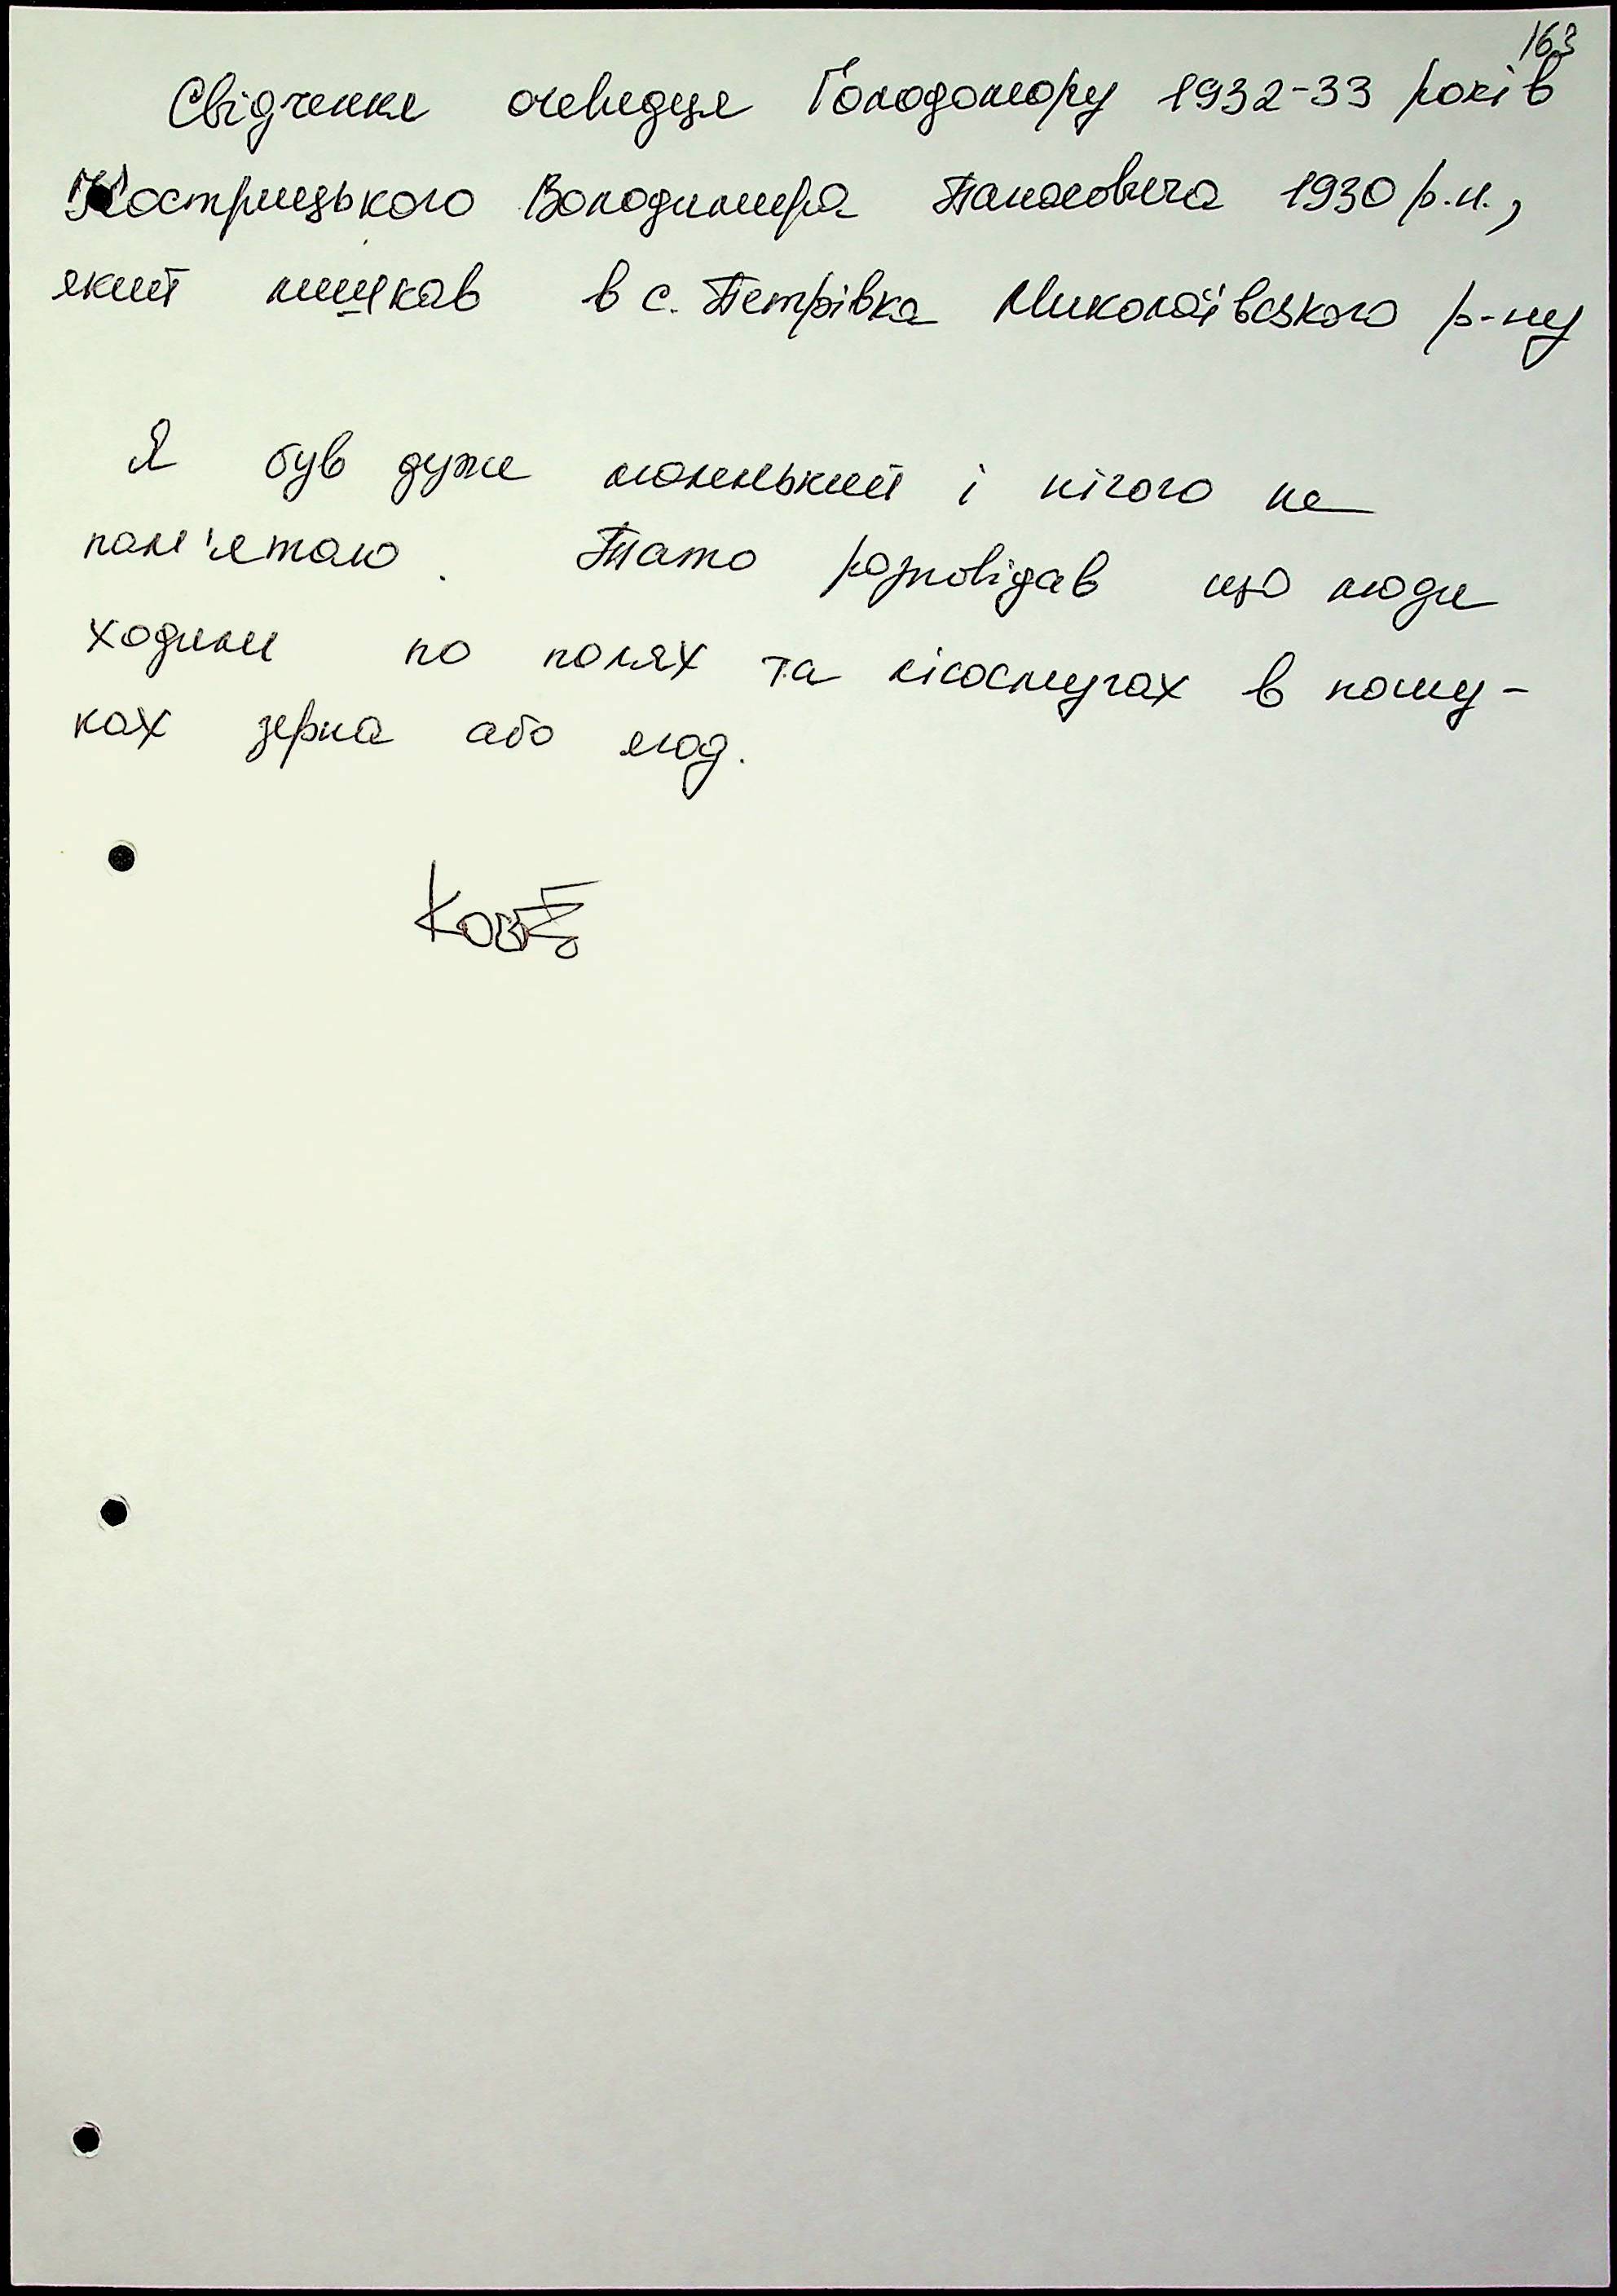 163
Свідчення очевидця Голодомору 1932-33 років
Кострицького Володимира Панасовича 1930 р.н.,
який мешкав в с. Петрівка Миколаївського р-ну
Я був дуже маленький і нічого не
пам'ятаю. Тато розповідав що люди
ходили по полях та лісосмугах в пошу-
ках зерна або ягод.